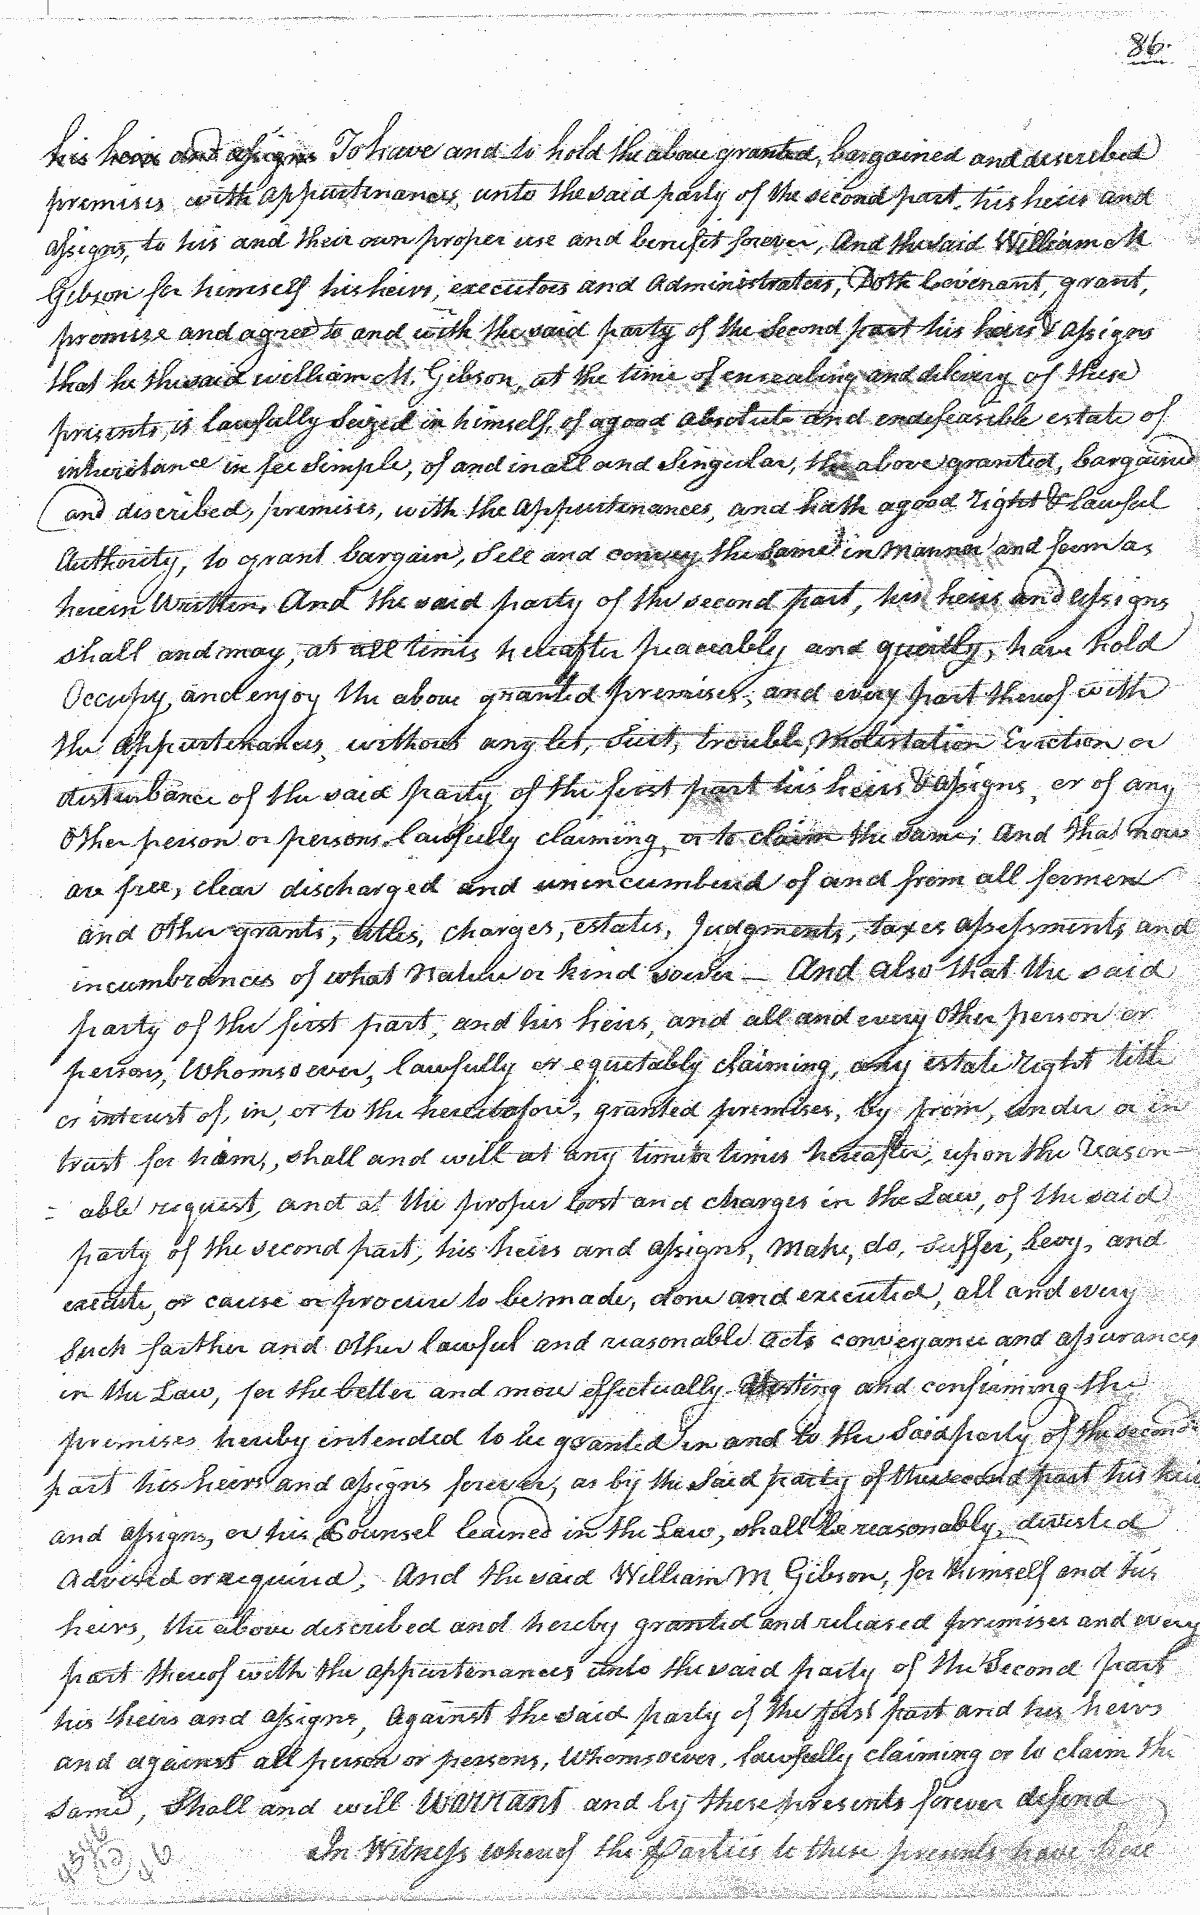 86.
his heirs and assigns To have and to hold the above granted, bargained and described
premises with appurtenances, unto the said party of the second part, his heirs and
assigns, to his and their own proper use and benefit forever, And the said William M
Gibson for himself his heirs, executors and Administrators, Doth Covenant, grant,
promise and agree to and with the said party of the Second part his heirs & assigns
that he the said William M. Gibson, at the time of ensealing and delivery of these
presents, is lawfully Seized in himself, of a good absolute and endefeasible estate of
inheritance in fee Simple, of and in all and Singular, the above granted, bargained
and discribed, premises, with the Appurtenances, and hath a good right & lawful
Authority, to grant bargain, Sell and convey the Same in Manner and form as
herein Written. And the said party of the second part, his heirs and assigns
shall and may, at all times hereafter peaceably and quietly, have hold
Occupy, and enjoy the above granted premises, and every part thereof with
the appurtenances, without any let, Suit, trouble, Molestation Eviction or
disturbance of the said party of the first part his heirs & assigns, or of any
Other person or persons lawfully claiming, or to claim the same; And that now
are free, clear discharged and unincumbered of and from all former
and other grants, titles, charges, estates, Judgments, taxes assessments and
incumbrances of what Nature or kind soever — And also that the said
party of the first part, and his heirs, and all and every other person or
persons, Whomsoever, lawfully or equitably claiming, any estate right title
or interest of, in, or to the heretofore, granted premises, by from, under or in
trust for him, shall and will at any time or times hereafter, upon the reason-
= able request, and at the proper Cost and charges in the Law, of the said
party of the second part, his heirs and assigns, Make, do, Suffer, Levy, and
execute, or cause or procure to be made, done and executed, all and every
Such farther and other lawful and reasonable acts conveyance and assurances
in the Law, for the better and more effectually Vesting and confirming the
premises hereby intended to be granted in and to the Said party of the second
part his heirs and assigns forever, as by the Said party of the second part his heirs
and assigns, or his Counsel learned in the Law, shall be reasonably, divested
Advised or required, And the said William M. Gibson, for himself and his
heirs, the above described and hereby granted and released premises and every
part thereof with the appurtenances unto the said party of the Second part
his heirs and assigns, Against the said party of the first part and his heirs
and against all person or persons, Whomsoever, lawfully claiming or to claim the
Same, Shall and will Warrant and by these presents forever defend
In Witness whereof the Parties to these presents have here